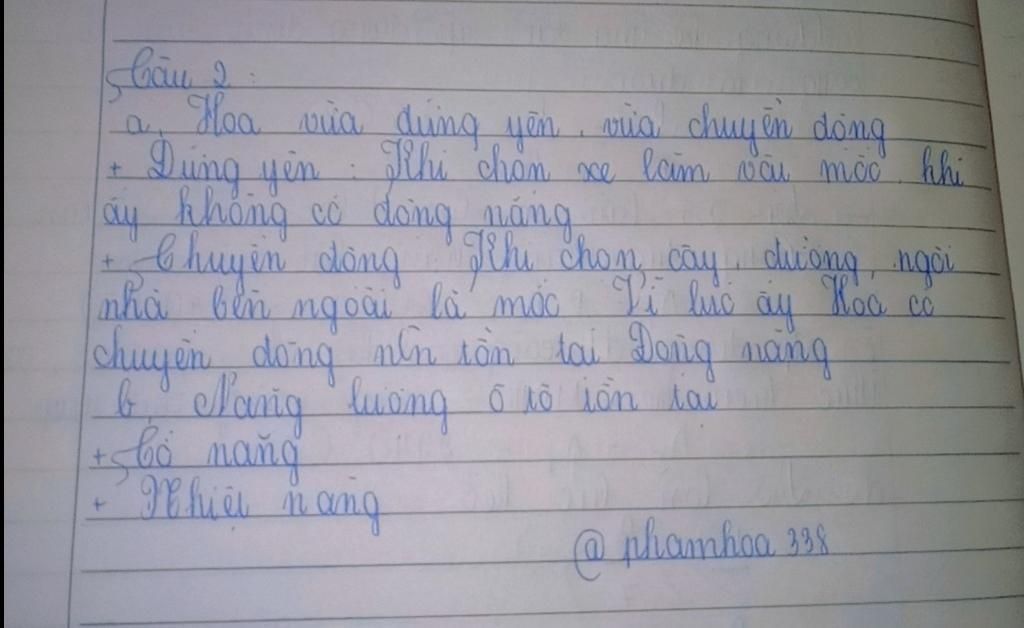 Câu 2 :
a, Hoa vừa đứng yên, vừa chuyển động
+ Đứng yên : Khi chọn xe làm vât mốc, khi
ấy không có động năng
+ Chuyển động : Khi chọn cây, đường, ngôi
nhà bên ngoài là mốc. Vì lúc ấy Hoa có
chuyển động nên tồn tại Động năng
b, Năng lương ô tô tồn tại
+ Cơ năng
+ Nhiệt năng
@ phamhoa 338